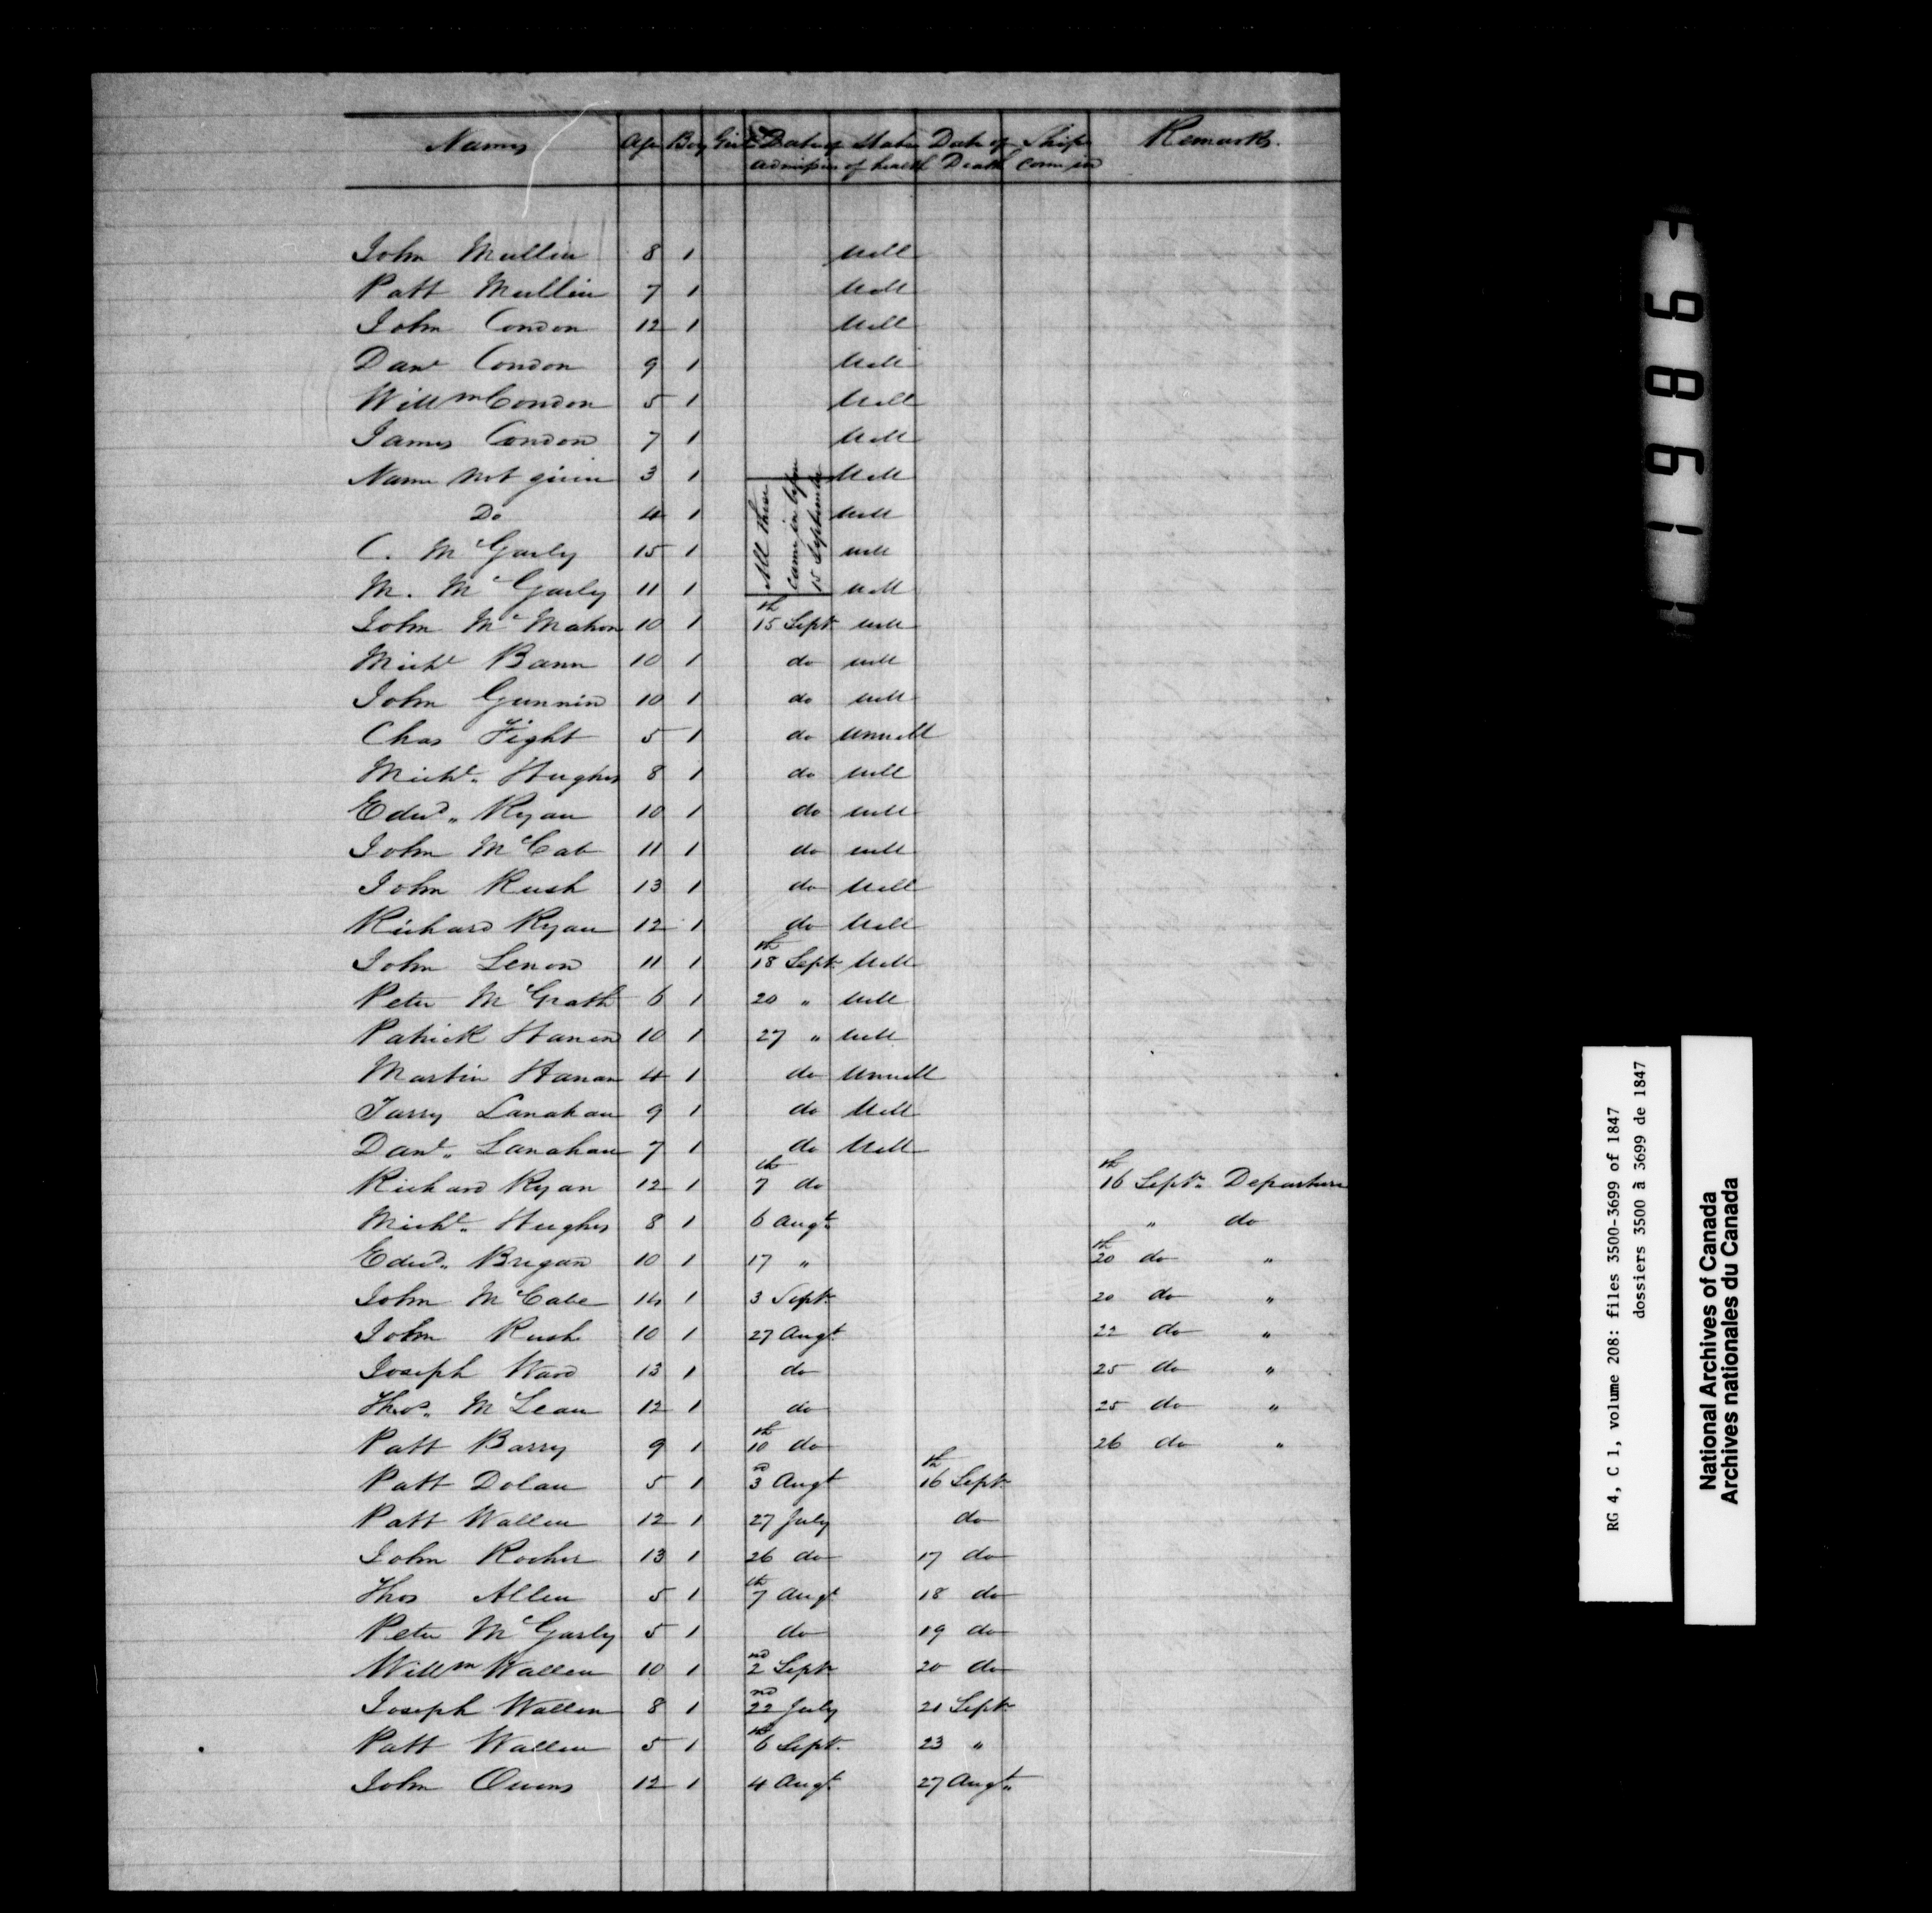 Names Age Boy Girl Date of admission State of health Date of Death Ship came in Remarks.
John Mullin 8 1 Well
Patt Mullin 7 1 Well
John Condon 12 1 Well
Danl Condon 9 1 Well
Willm Condon 5 1 Well
James Condon 7 1 Well
Name not given 3 1 Well
Do 4 1 well
C. McGarly 15 1 well
M. McGarly 11 1 well
All these came in before 15 September
John McMahon 10 1 15th Sept. well
Michl Bann 10 1 do well
John Gunnin 10 1 do well
Chas Fight 5 1 do unwell
Michl. Hughes 8 1 do well
Edwd. Ryan 10 1 do well
John McCab 11 1 do well
John Rush 13 1 do Well
Richard Ryan 12 1 do Well
John Lenon 11 1 18th Sept. Well
Peter McGrath 6 1 20 " well
Patrick Hanan 10 1 27 " well
Martin Hanan 4 1 do unwell
Tarry Lanahan 9 1 do Well
Danl. Lanahan 7 1 do Well
Richard Ryan 12 1 7th do 16th Sept. Departure
Michl. Hughes 8 1 6 Augt. " do
Edwd. Brigan 10 1 17 " 20th do "
John McCabe 14 1 3 Sept. 20 do "
John Rush 10 1 27 Augt. 22 do "
Joseph Ward 13 1 do 25 do "
Thos. McLean 12 1 do 25 do "
Patt Barry 9 1 10th do 26 do "
Patt Dolan 5 1 3rd Augt 16th Sept.
Patt Wallen 12 1 27 July do
John Rocher 13 1 26 do 17 do
Thos Allen 5 1 7th Augt 18 do
Peter McGarly 5 1 do 19 do
Willm Wallen 10 1 2nd Sept. 20 do
Joseph Wallen 8 1 22nd July 21 Sept.
Patt Wallen 5 1 6th Sept. 23 "
John Owens 12 1 4 Augt. 27 Augt.
91986
RG 4, C 1, volume 208: files 3500-3699 of 1847
dossiers 3500 à 3699 de 1847
National Archives of Canada
Archives nationales du Canada